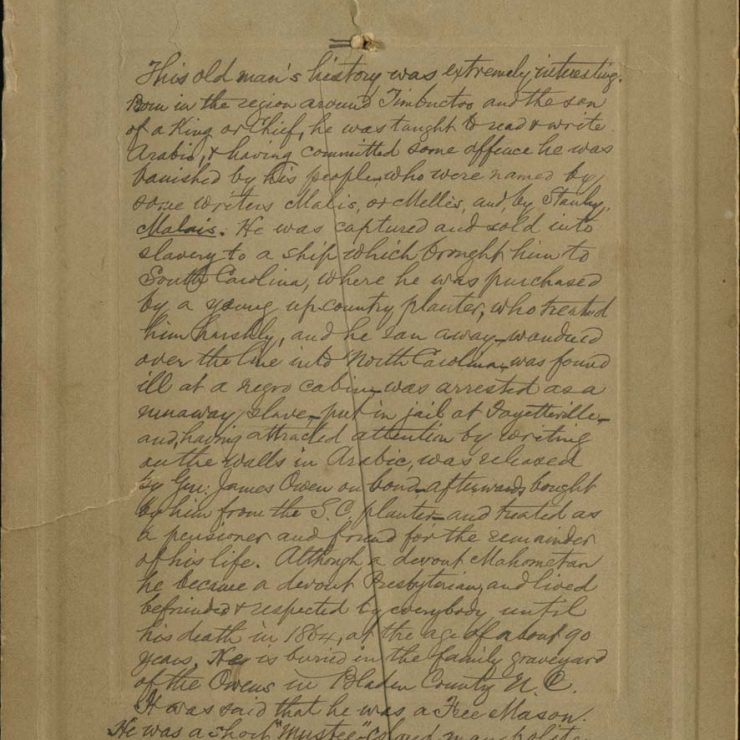 This old man's history was extremely interesting.
Born in the region around Timbuctoo and the son
of a King or Chief, he was taught to read & write
Arabic, & having committed some offence he was
banished by his people, who were named by
some writers Malis, or Mellis, and by Stanley,
Malais. He was captured and sold into
slavery to a ship which brought him to
South Carolina, where he was purchased
by a young up-country planter, who treated
him harshly, and he ran away – wandered
over the line into North Carolina – was found
ill at a negro cabin – was arrested as a
runaway slave – put in jail at Fayetteville –
and, having attracted attention by writing
on the walls in Arabic, was released
by Gen: James Owen on bond – afterwards bought
by him from the S.C. planter – and treated as
a pensioner and found for the remainder
of his life. Although a devout Mahometan
he became a devout Presbyterian, and lived
befriended & respected by everybody until
his death in 1864, at the age of about 90
years. He is buried in the family graveyard
of the Owens in Bladen County N.C.
It was said that he was a Free Mason.
He was a short "Mustee"-colored man, polite